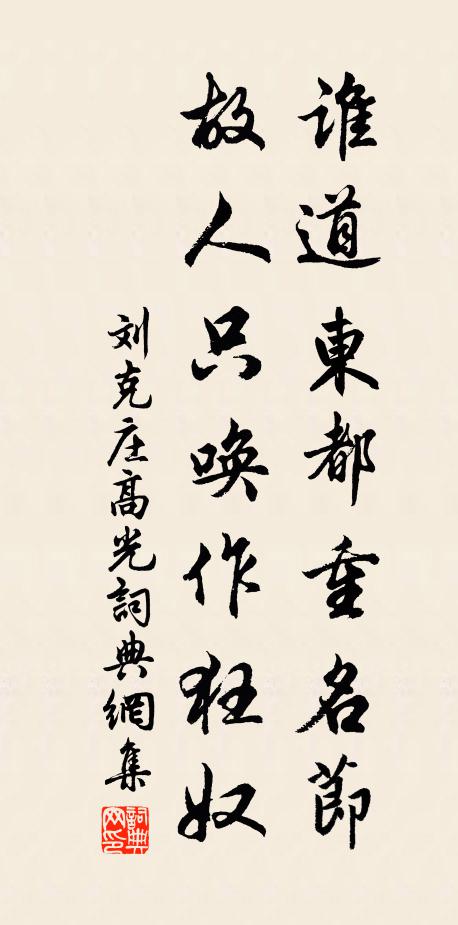 誰道東都重名節
故人只喚作狂奴
刘克庄高光詞典網集
詞典网印